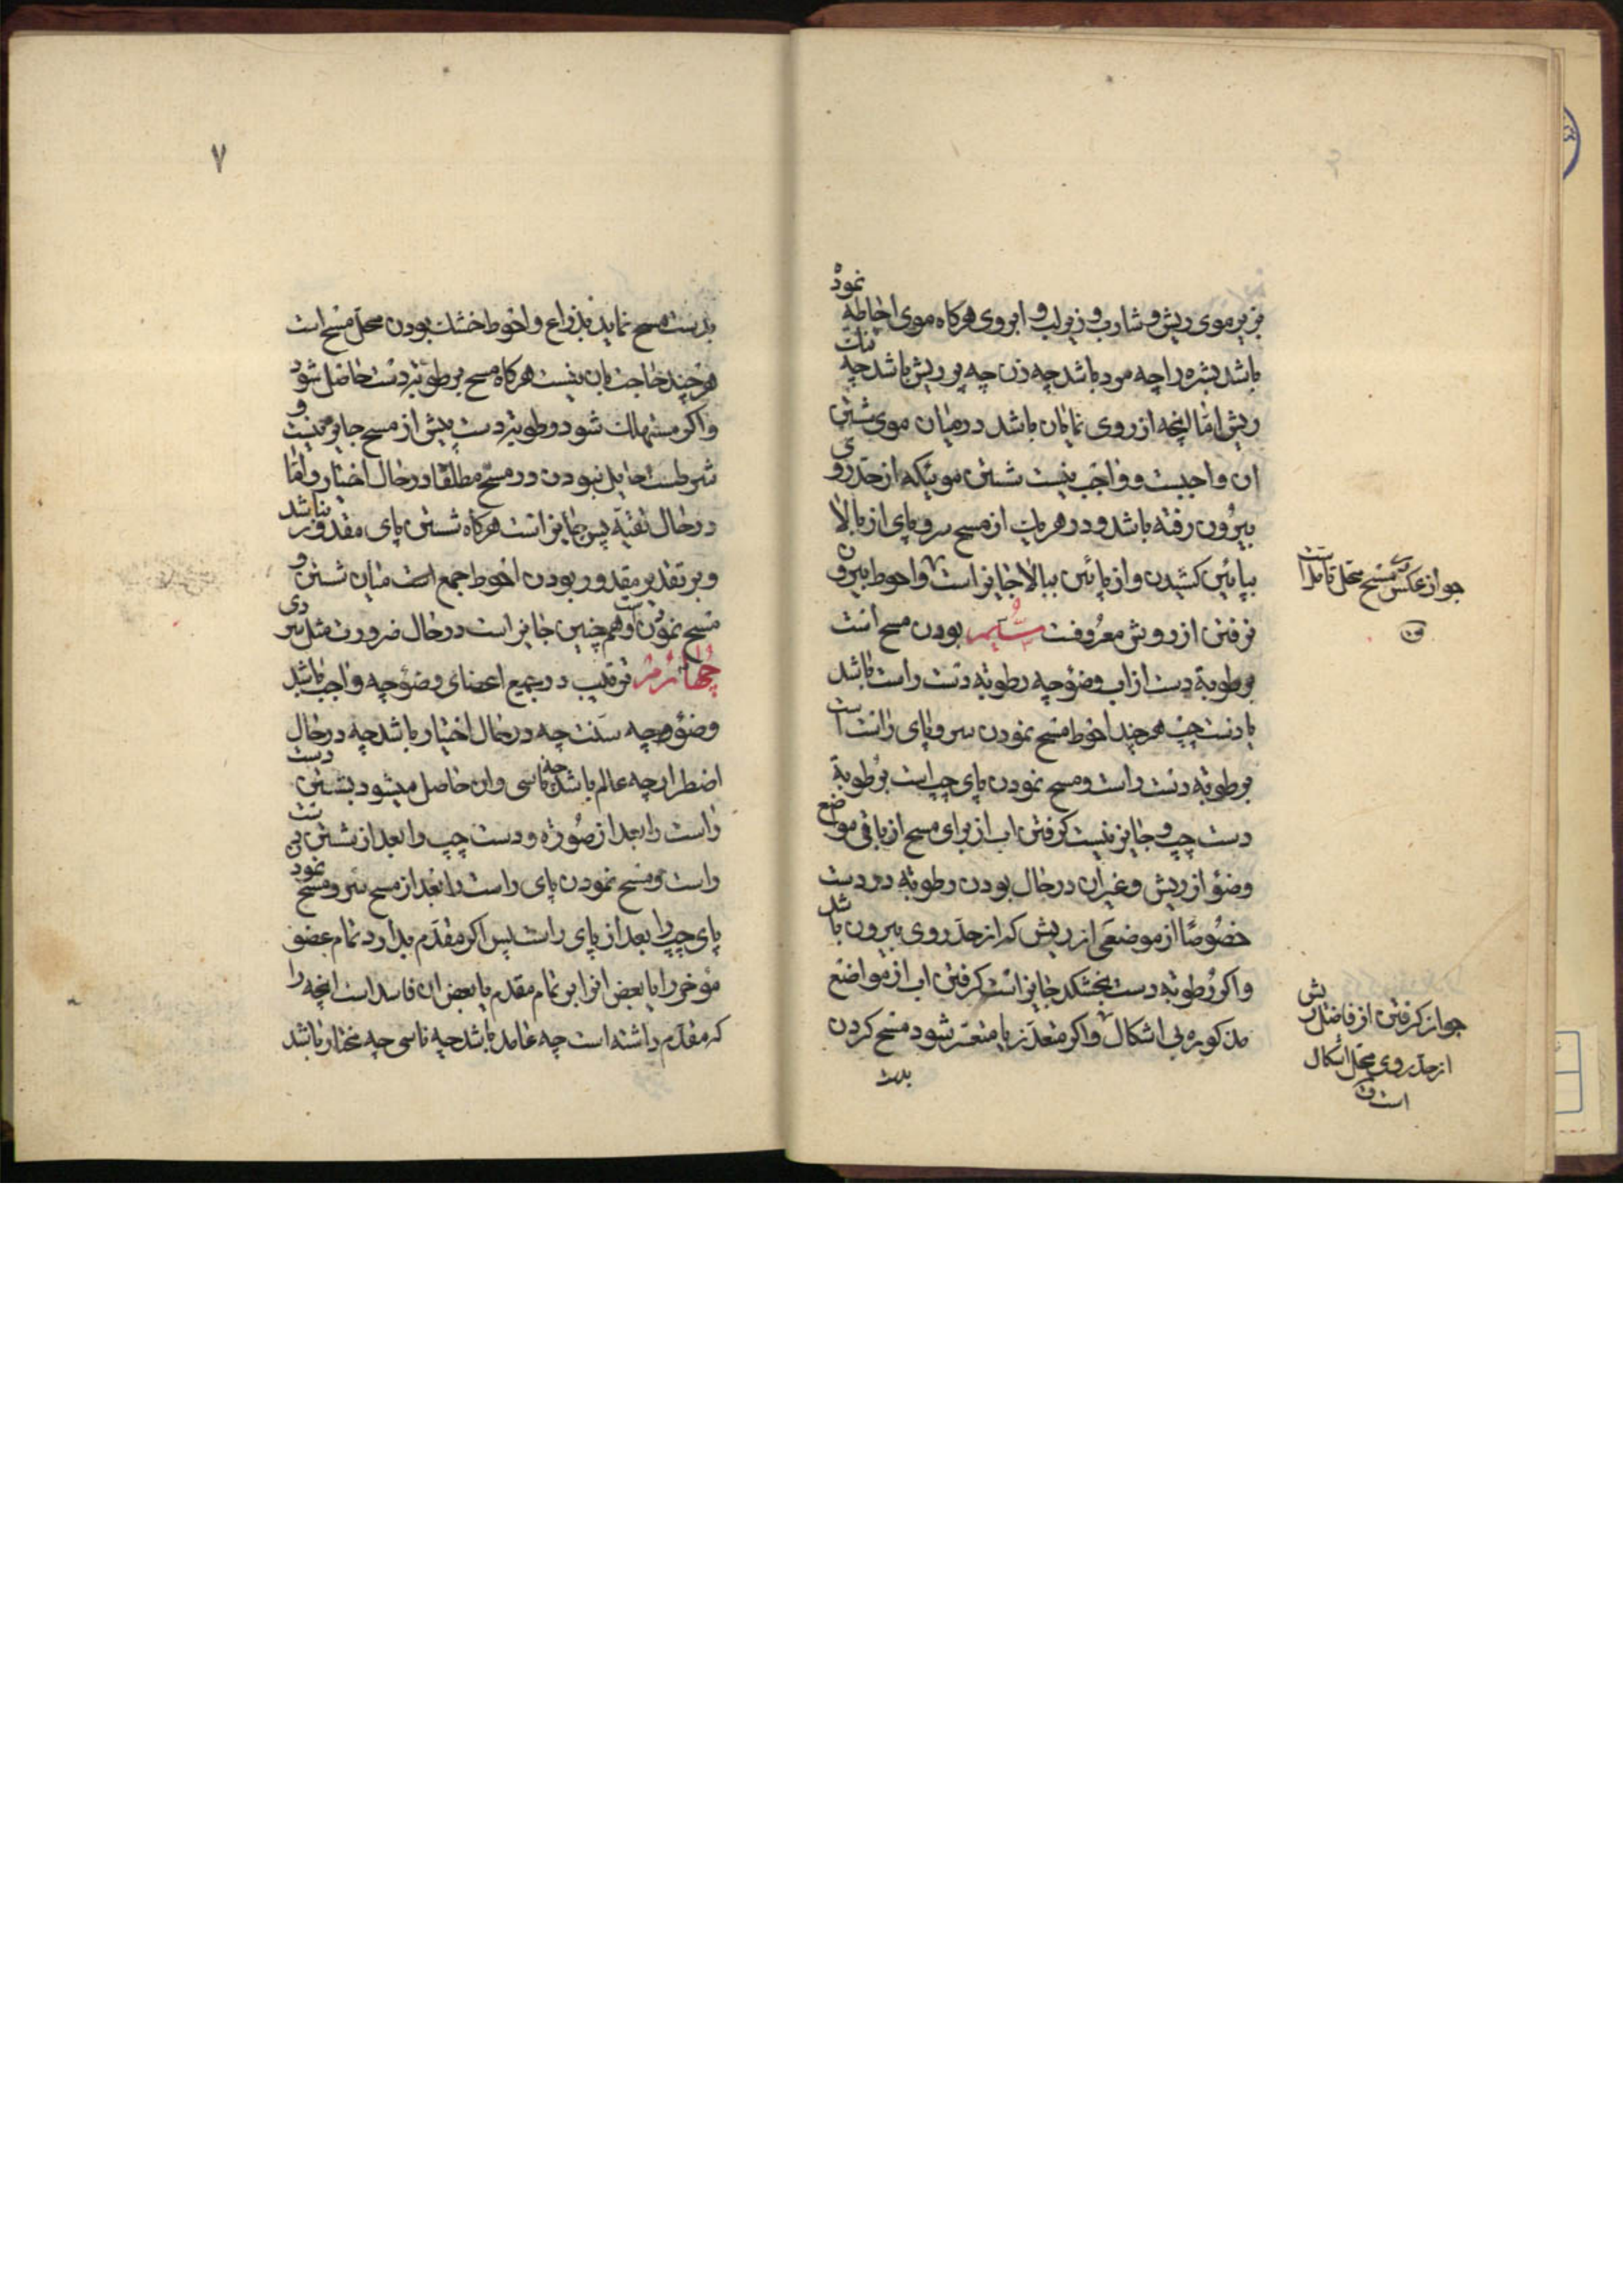 بزیر موی ریش و شارب و زیر لب و ابروی هرکاه موی احاطه نموده
باشد بشره را چه مرد باشد چه زن چه پر ریش باشد چه تنک
ریش اما انچه از روی نمایان باشد در میان موی شستن
ان واجبست و واجب نیست شستن موئیکه از حد روی
بیرون رفته باشد و در هریک از مسح سر و پای از بالا
بپائین کشیدن و از پائین ببالا جایز است و احوط بیرون
نرفتن از روش معروفست سیم بودن مسح است
برطوبة دست از اب وضو چه رطوبة دست راست باشد
یا دست چپ هر چند احوط مسح نمودن سر و پای راست است
برطوبة دست راست و مسح نمودن پای چپ است برطوبة
دست چپ و جایز نیست کرفتن اب از برای مسح از باقی مواضع
وضو از ریش و غیر ان در حال بودن رطوبة در دست
خصوصا از موضعی از ریش که از حد روی بیرون باشد
و اکر رطوبة دست بخشکد جایز است کرفتن اب از مواضع
مذکوره بی اشکال و اکر متعذر یا متعسر شود مسح کردن
بدست
جواز عکس مسح محل تامل است
جواز کرفتن از فاضل ریش
از حد روی محل اشکال
است
۷
بدست مسح نماید بذراع و احوط خشک بودن محل مسح است
هر چند حاجت بان نیست هرکاه مسح برطوبة دست حاصل شود
و اکر مستهلک شود رطوبة دست پیش از مسح جایز نیست و
شرطست حایل نبودن در مسح مطلقا در حال اختیار و اما
در حال تقیه پس جایز است هرکاه شستن پای مقدور نباشد
و بر تقدیر مقدور بودن احوط جمع است میان شستن و
مسح نمودن و هم چنین جایز است در حال ضرورت مثل سردی
چهارم ترتیب در جمیع اعضای وضو چه واجب باشد
وضو و چه سنت چه در حال اختیار باشد چه در حال
اضطرار چه عالم باشد چه ناسی و ان حاصل میشود بشستن دست
راست را بعد از صورة و دست چپ را بعد از شستن دست
راست و مسح نمودن پای راست را بعد از مسح سر و مسح نمودن
پای چپ را بعد از پای راست پس اکر مقدم بدارد تمام عضو
مؤخر را یا بعض انرا بر تمام مقدم یا بعض ان فاسد است انچه را
که مقدم داشته است چه عامد باشد چه ناسی چه مختار باشد